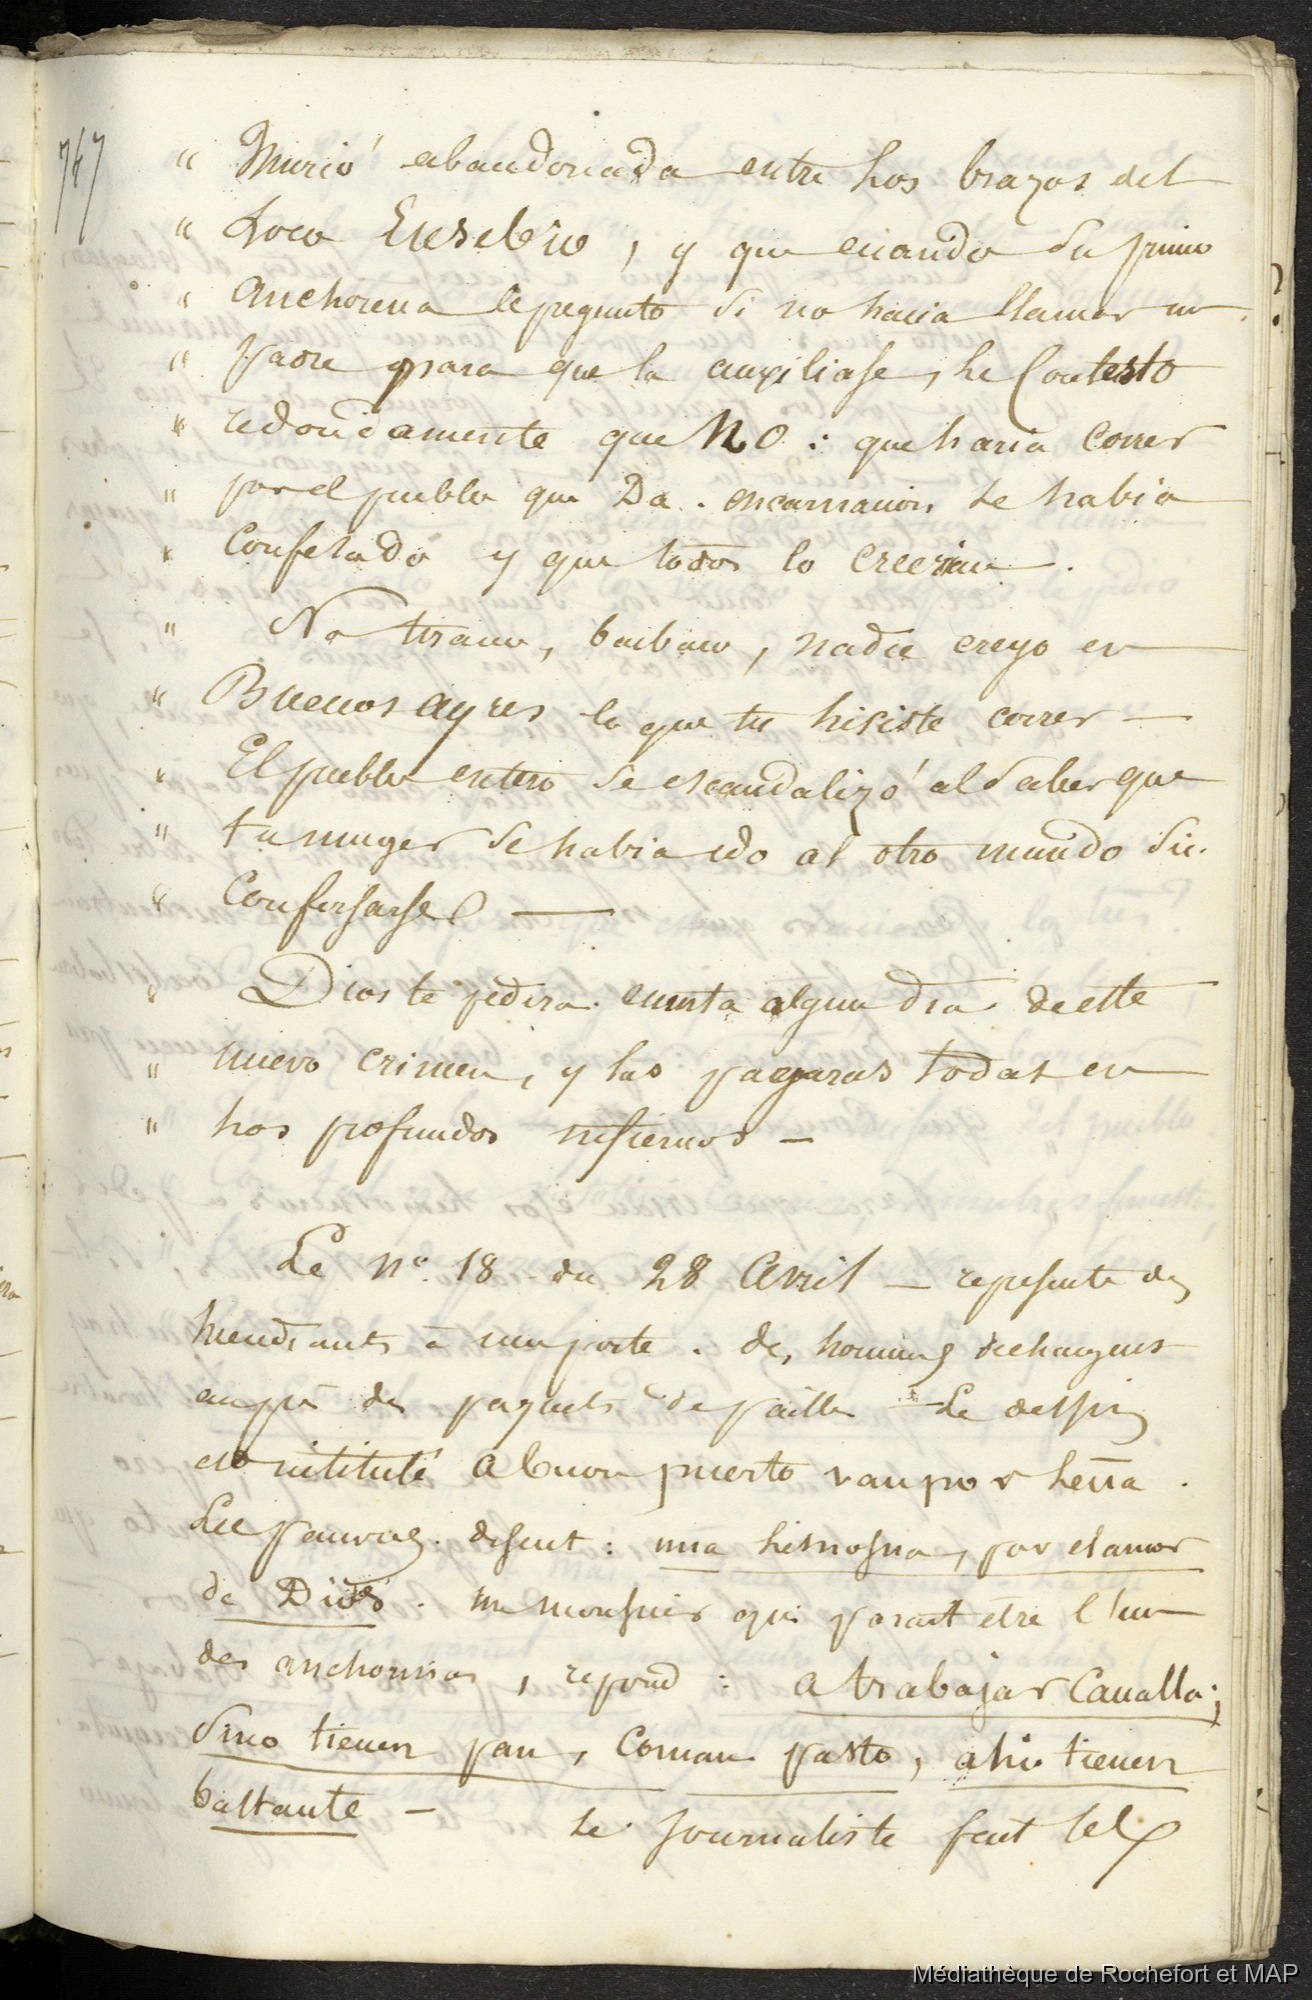 747
" Murió abandonada entre los brazos del
" Loco Eusebio, y que cuando su primo
" Anchorena le pregunto si no hacia llamar un
" padre para que la auxiliase, le Contesto
" redondamente que NO : que haria correr
" por el pueblo que Da. encarnacion se habia
" Confesado y que todos lo creerian.
" No tirano, barbaro, nadie creyo en
" Buenos ayres lo que tu hiciste correr —
" El pueblo entero se escandalizó al saber que
" tu muger se habia ido al otro mundo sin
" Confessarse —
" Dios te pedira cuenta algun dia de este
" nuevo crimen, y las pagaras todas en
" los profundos infiernos —
Le No. 18 du 28 Avril — represente des
mendiants à une porte. des hommes dechargent
auprès des paquets de paille — Le dessin
est intitulé A buon puerto van por leña.
Les pauvres disent : una limosna, por el amor
de Dios. un monsieur qui parait etre l'un
des anchorenas, repond : A trabajar Canalla;
sino tienen pan, coman pasto, ahi tienen
bastante — le journaliste fait
Médiathèque de Rochefort et MAP